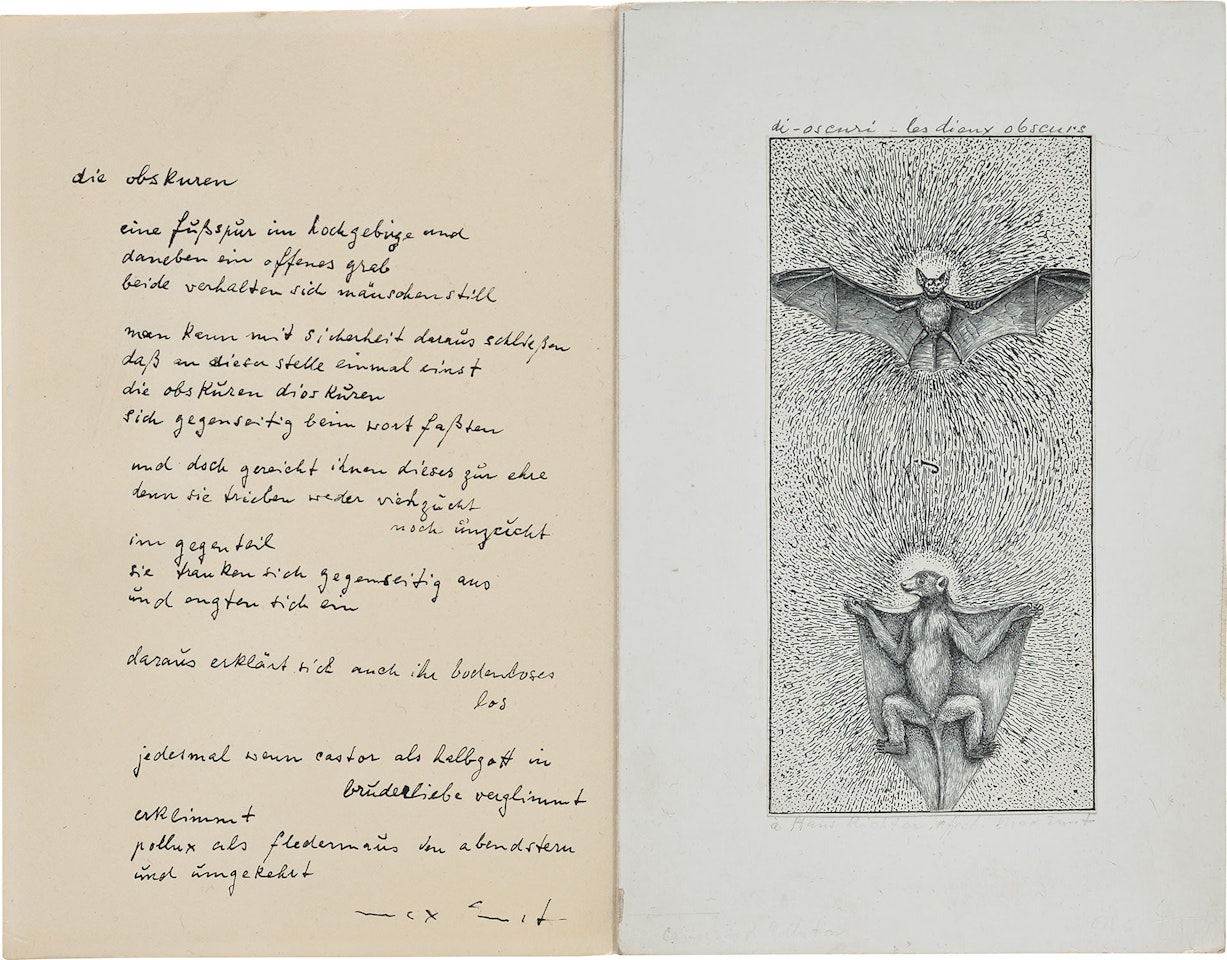 die obskuren
eine fußspur im hochgebirge und
daneben ein offenes grab
beide verhalten sich mäuschenstill
man kann mit sicherheit daraus schließen
daß an dieser stelle einmal einst
die obskuren dioskuren
sich gegenseitig beim wort faßten
und doch gereicht ihnen dieses zur ehre
denn sie trieben weder viehzucht
noch unzucht
im gegenteil
sie tranken sich gegenseitig aus
und engten sich ein
daraus erklärt sich auch ihr bodenloses
los
jedesmal wenn castor als halbgott in
bruderliebe verglimmt
erklimmt
pollux als fledermaus den abendstern
und umgekehrt
max ernst
di-oscuri - les dieux obscurs
à Hans max ernst